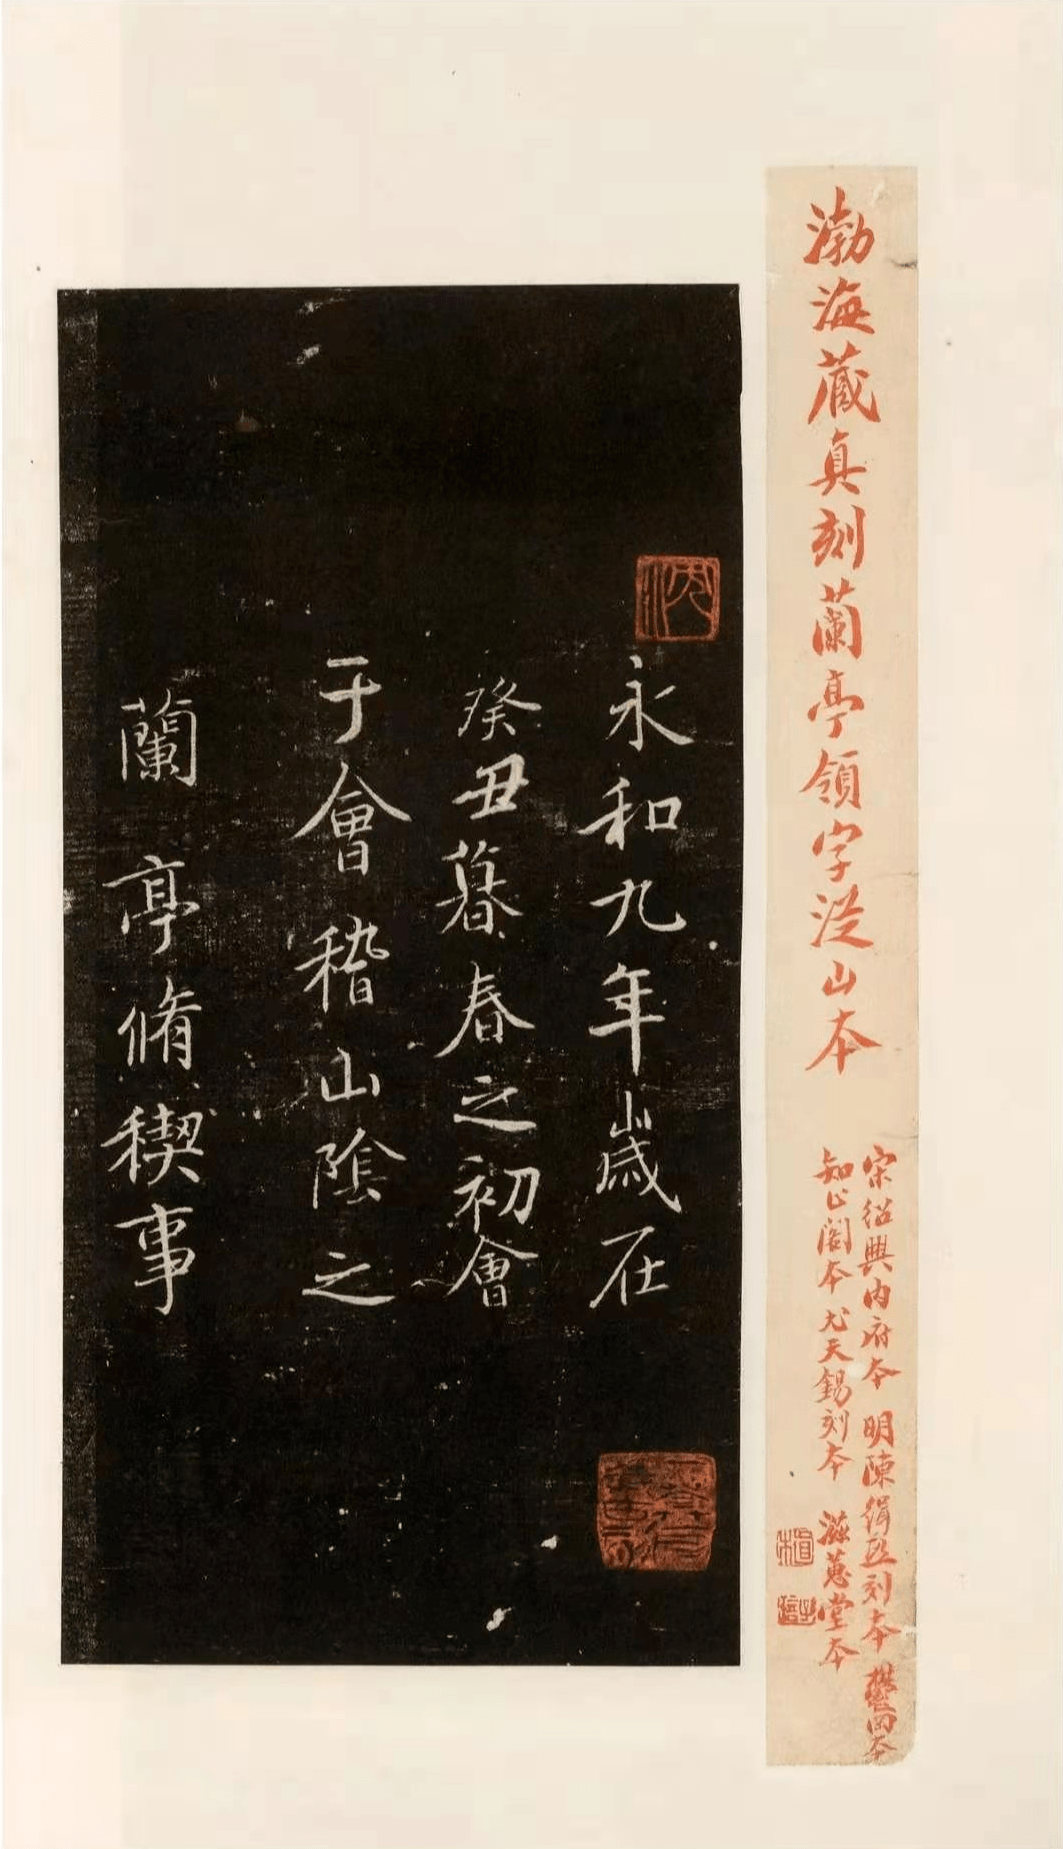 渤海藏真刻蘭亭領字從山本
宋紹興内府本 明陳緝熙刻本 鬱岡本
知止閣本 尤天錫刻本 滋蕙堂本
永和九年歲在
癸丑暮春之初會
于會稽山陰之
蘭亭脩稧事